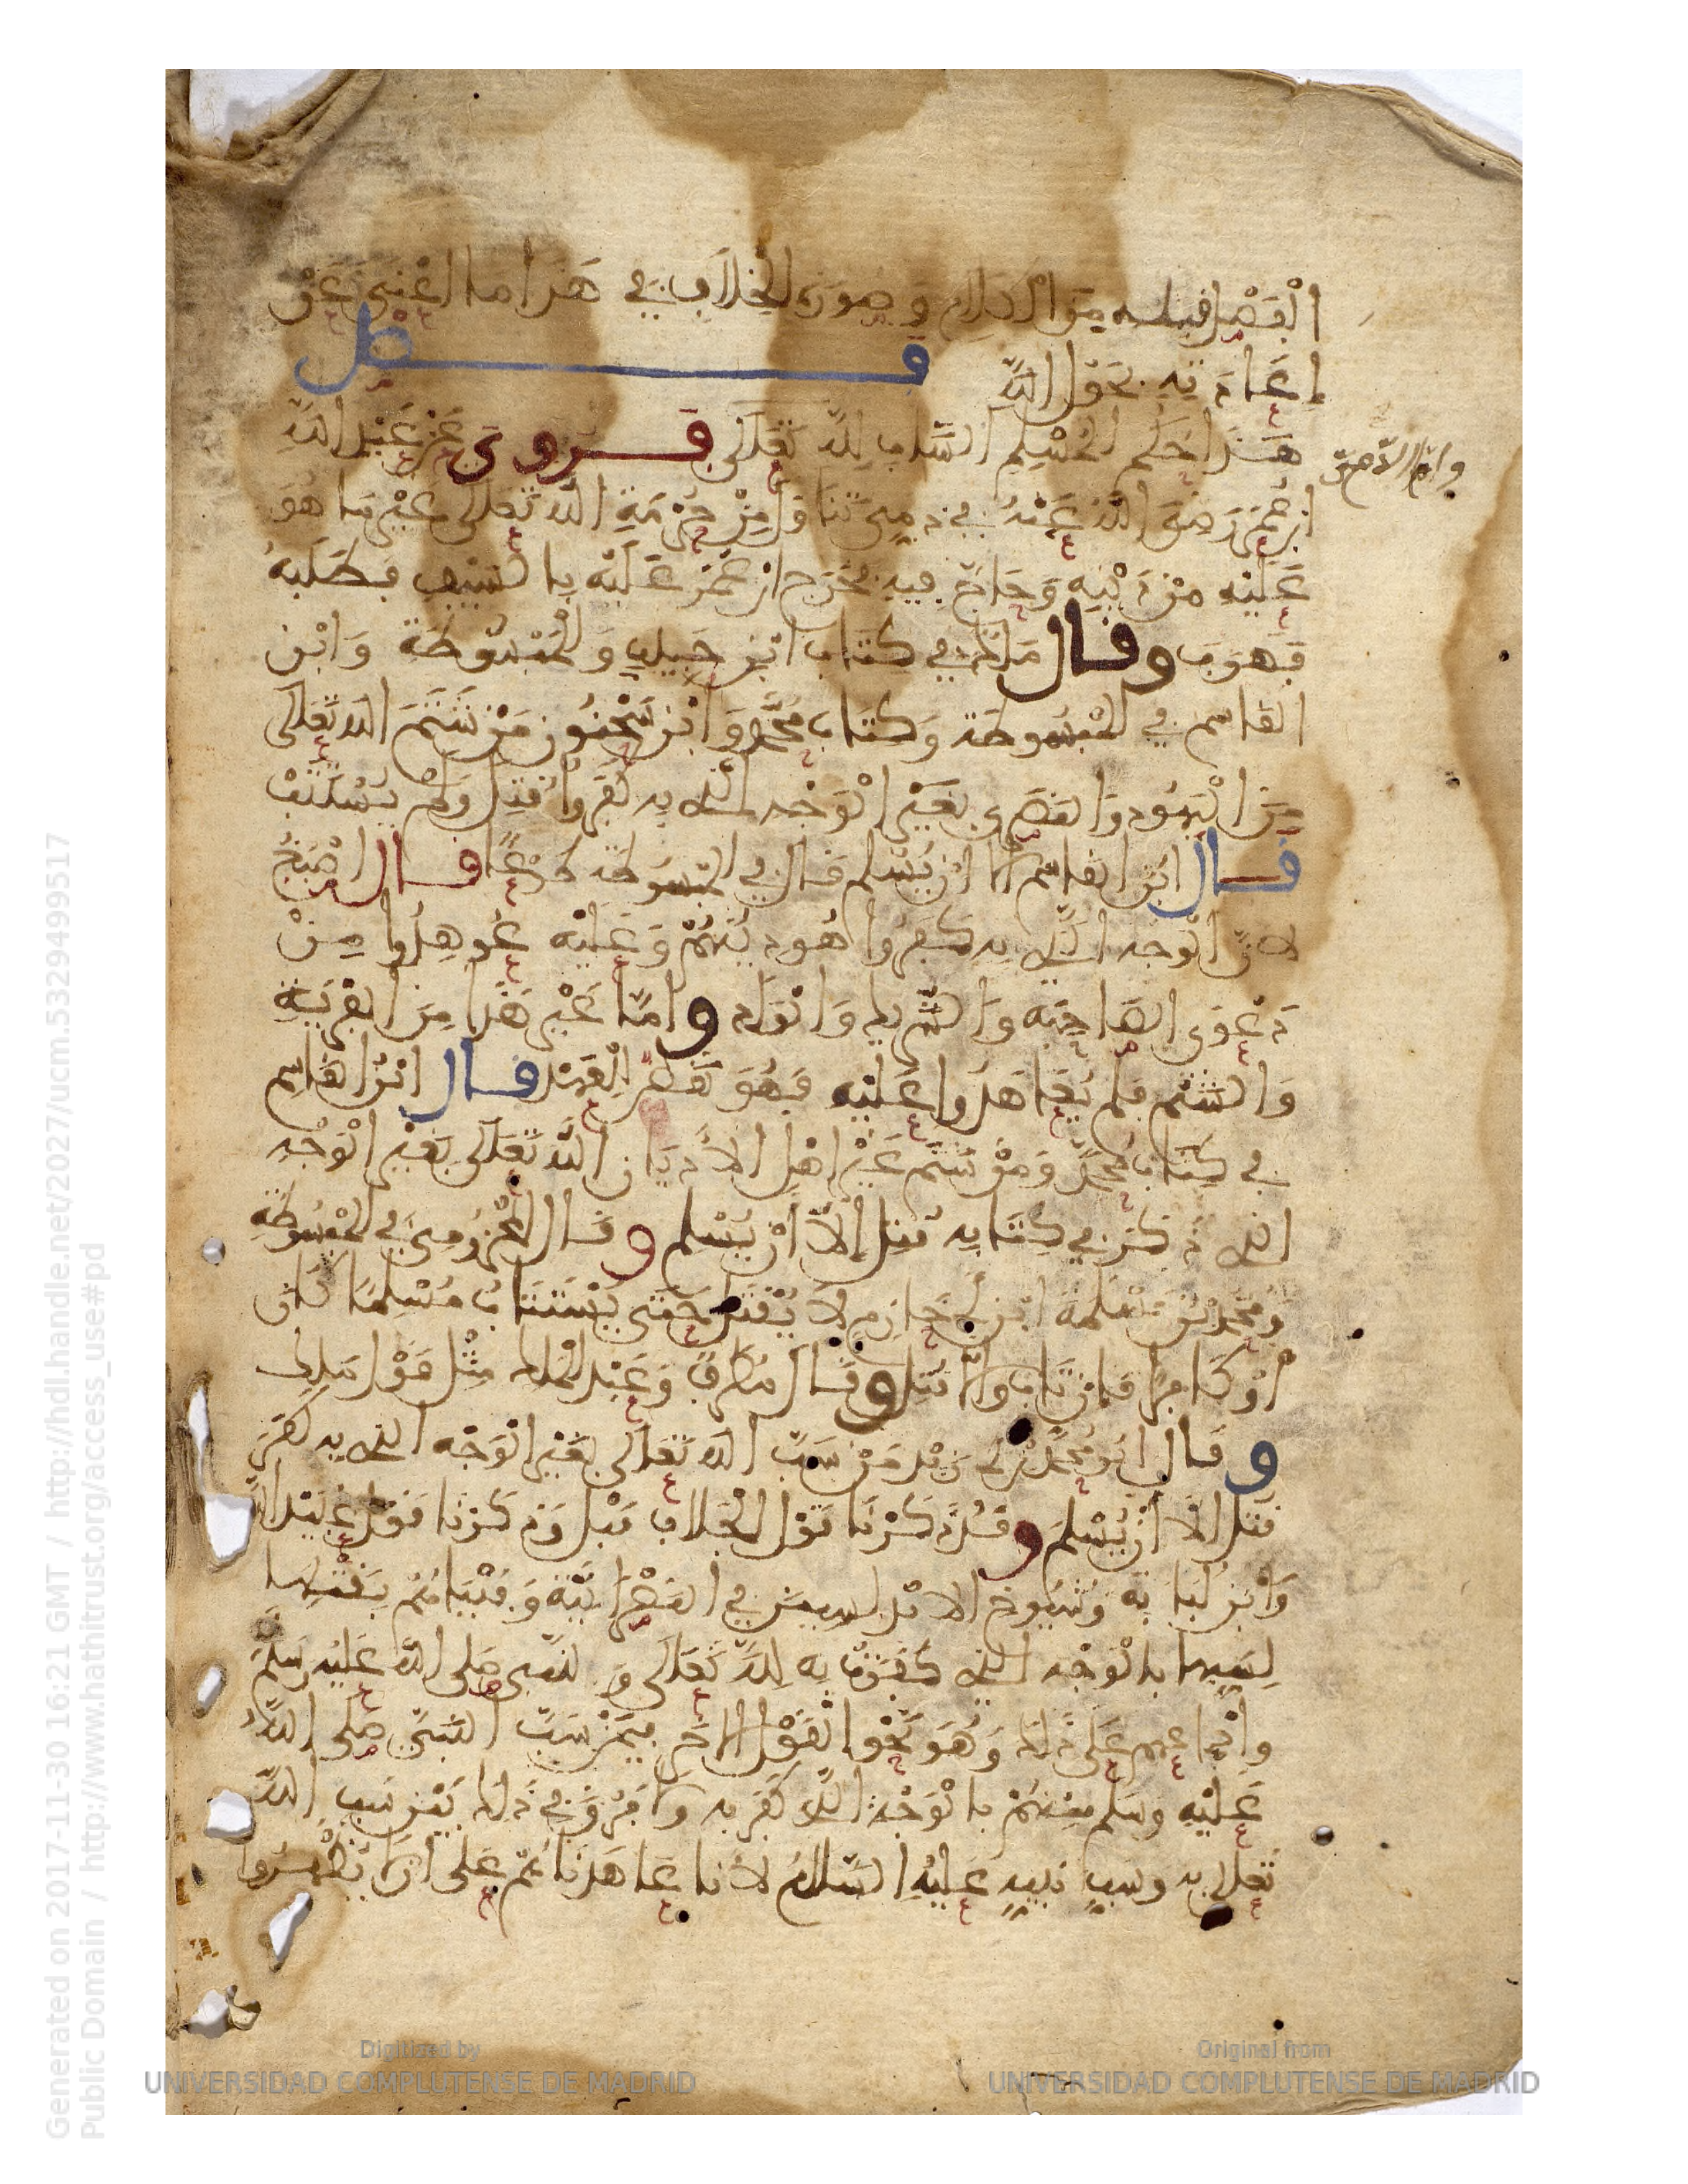 الْفَصْل قبله مِنَ الكلام وصورة الخلاف في هذا ما اغنى عن
إعادته بحول الله فصل
هذا حكم المسلم الساب لله تعالى فروي عن عبد الله
وامّا الذمّيّ
ابن عمر رضي الله عنه في ذمي تناول من حرمة الله تعالى غير ما هو
عليه من دينه وحاجّ فيه فخرج ابن عمر عليه بالسيف فطلبه
فهرب وقال مالك في كتاب ابن حبيب والمبسوطة وابن
القاسم في المبسوطة وكتاب محمد وابن سحنون من شتم الله تعالى
من اليهود والنصرى بغير الوجه الذي به كفروا قتل ولم يستتب
قال ابن القاسم الا ان يسلم قال في المبسوطة طوعًا قال اصبغ
لان الوجه الذي به كفروا هو دينهم وعليه عوهدوا من
دعوى الصاحبة والشريك والولد واما غير هذا من الفرية
والشتم فلم يعاهدوا عليه فهو نقض للعهد قال ابن القاسم
في كتاب محمد ومن شتم من غير اهل الاديان الله تعالى بغير الوجه
الذي ذكر في كتابه قتل إلا ان يسلم وقال المخزومي في المبسوطة
ومحمد بن مسلمة ابن ابي حازم لا يقتل حتى يستتاب مسلما كان
او كافرا فان تاب والا قتل وقال مطرف وعبد الملك مثل قول ملك
وقال ابو محمد بن ابي زيد من سب الله تعالى بغير الوجه الذي به كفر
قتل الا ان يسلم وقد ذكرنا قول ابن الجلاب قبل وذكرنا قول عبيد الله
وابن لبابة وشيوخ الاندلسيين في النصرانية وفتياهم بقتلها
لسبها بالوجه الذي كفرت به لله تعالى وللنبي صلى الله عليه وسلم
وإجماعهم على ذلك وهو نحو القول الاخر فيمن سب النبي صلى الله
عليه وسلم منهم بالوجه الذي كفر به ولا فرق في ذلك بين سب الله
تعلى به وسب نبيه عليه السلام لانا عاهدناهم على ان لا يظهروا
Generated on 2017-11-30 16:21 GMT / http://hdl.handle.net/2027/ucm.5329499517
Public Domain / http://www.hathitrust.org/access_use#pd
Digitized by
UNIVERSIDAD COMPLUTENSE DE MADRID
Original from
UNIVERSIDAD COMPLUTENSE DE MADRID